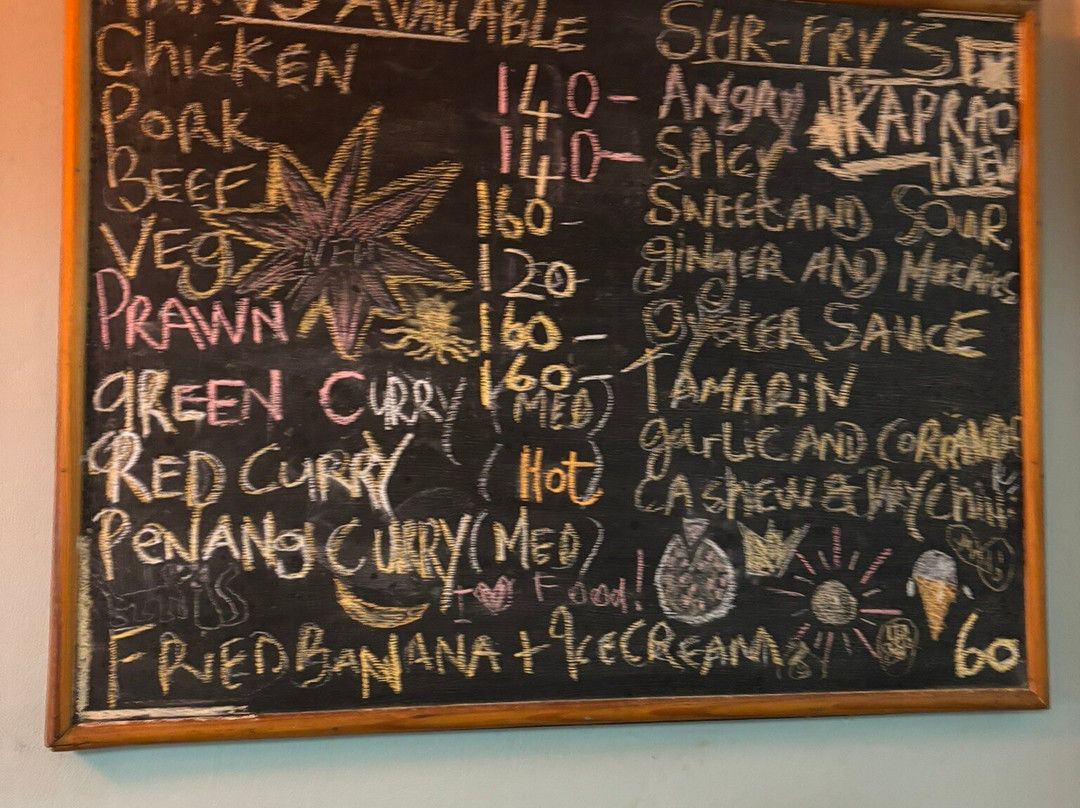 AVAILABLE
STIR-FRY'S
Chicken
140- ANGRY KAPRAO
Pork
140- SPICY NEW
BEEF
160- SWEET AND SOUR
Veg NEW
120- GINGER AND
PRAWN
160- OYSTER SAUCE
160- TAMARIN
GREEN CURRY (MED)
garlic AND
RED CURRY (Hot)
CASHEW & DRY CHilli
PENANG CURRY (MED)
I Food!
FRIED BANANA + ICE CREAM 60